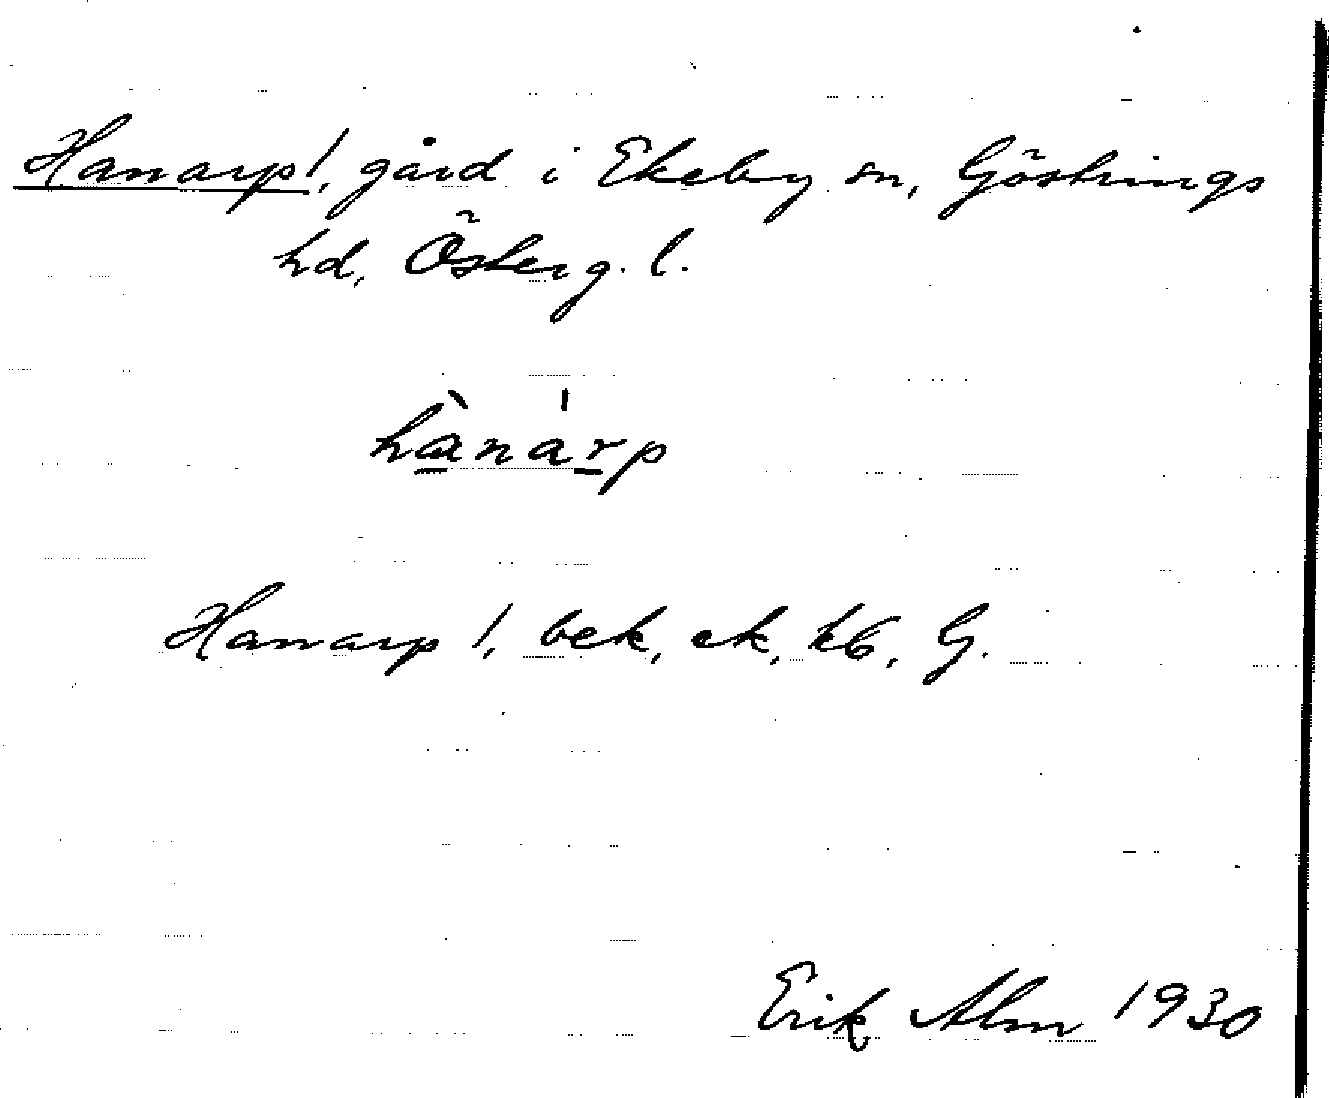 Hanarp!, gård i Ekeby sn, Göstrings
hd, Österg. l.
hànárp
Hanarp !, bek, ek, kb, G.
Erik Alm 1930